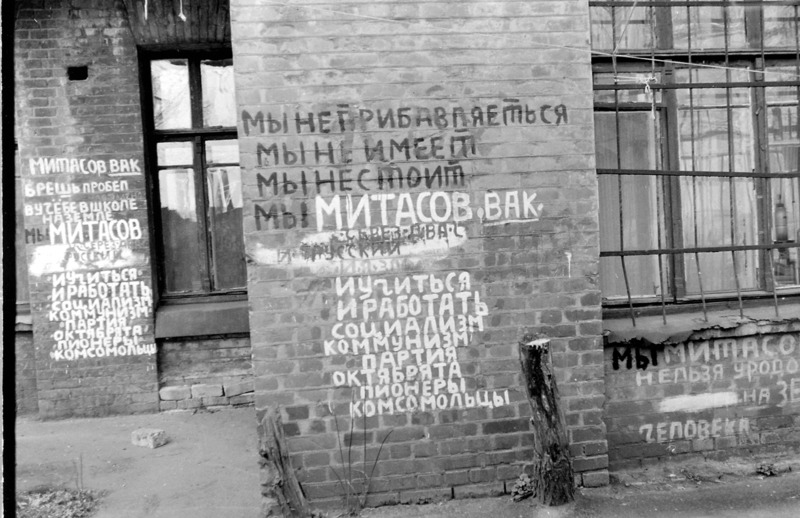 МИТАСОВ ВАК
БРЕШЬ ПРОБЕЛ
В УЧЕБЕ В ШКОЛЕ
НА ЗЕМЛЕ
МЫ МИТАСОВ
И УЧИТЬСЯ
И РАБОТАТЬ
СОЦИАЛИЗМ
КОММУНИЗМ
ПАРТИЯ
ОКТЯБРЯТА
ПИОНЕРЫ
КОМСОМОЛЬЦЫ
МЫ НЕ ПРИБАВЛЯЕТЬСЯ
МЫ НЕ ИМЕЕТ
МЫ НЕ СТОИТ
МЫ МИТАСОВ. ВАК.
И РУССКИЙ
И УЧИТЬСЯ
И РАБОТАТЬ
СОЦИАЛИЗМ
КОММУНИЗМ
ПАРТИЯ
ОКТЯБРЯТА
ПИОНЕРЫ
КОМСОМОЛЬЦЫ
МЫ МИТАСО
НЕЛЬЗЯ УРОДО
НА ЗЕ
ЧЕЛОВЕКА